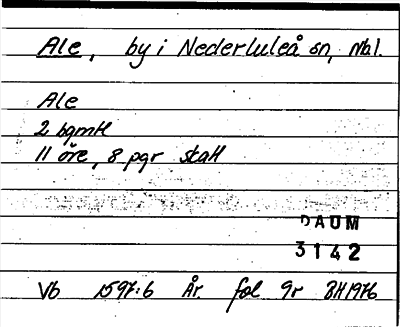 Ale, by i Nederluleå sn, Nbl.
Ale
2 bgmtl
11 öre, 8 pgr skatt
DAUM
3142
Vb 1597:6 År. fol 9r BH1976